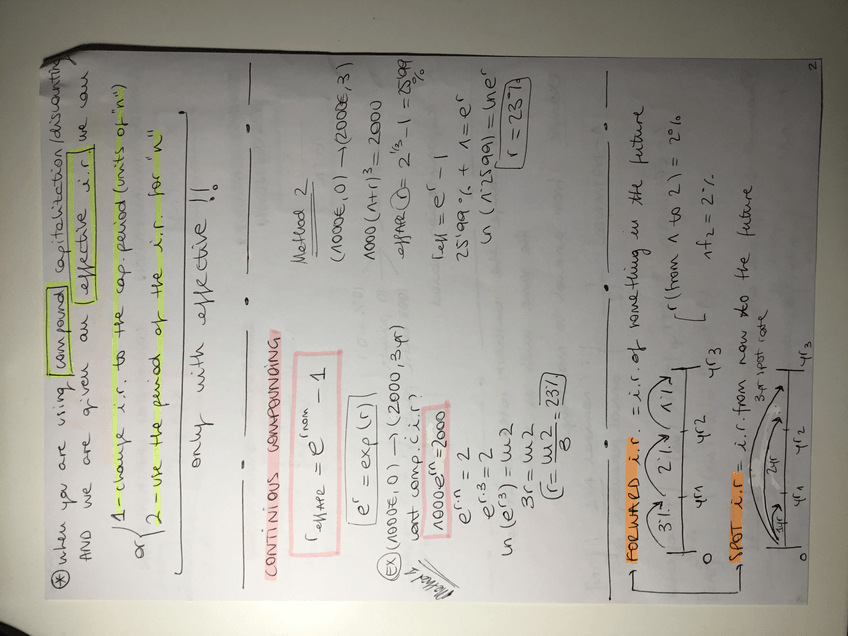 * when you are using compound capitalitation/discounting
AND we are given an effective i.r. we can
or { 1 - change i.r. to the cap. period (units of "n")
2 - use the period of the i.r. for "n"
only with effective !!
CONTINIOUS COMPOUNDING
r eff APR = e^r nom - 1
e^r = exp(r)
EX (1000€, 0) → (2000, 3yr)
cont comp. (i.r?
Method 1
1000e^rn = 2000
e^r·n = 2
e^r·3 = 2
ln (e^r·3) = ln 2
3r = ln 2
r = ln 2 / 3 = 23%
Method 2
(1000€, 0) → (2000€, 3)
1000 (1+r)^3 = 2000
eff APR r = 2^1/3 - 1 = 25'99 %
r eff = e^r - 1
25'99 % + 1 = e^r
ln (1'2599) = ln e^r
r = 23%
FORWARD i.r. = i.r. of something in the future
3% 2% 1%
0 yr1 yr2 yr3
r (from 1 to 2) = 2%
1f2 = 2%
SPOT i.r = i.r. from now to the future
3yr spot rate
1yr 2yr
0 yr1 yr2 yr3
2